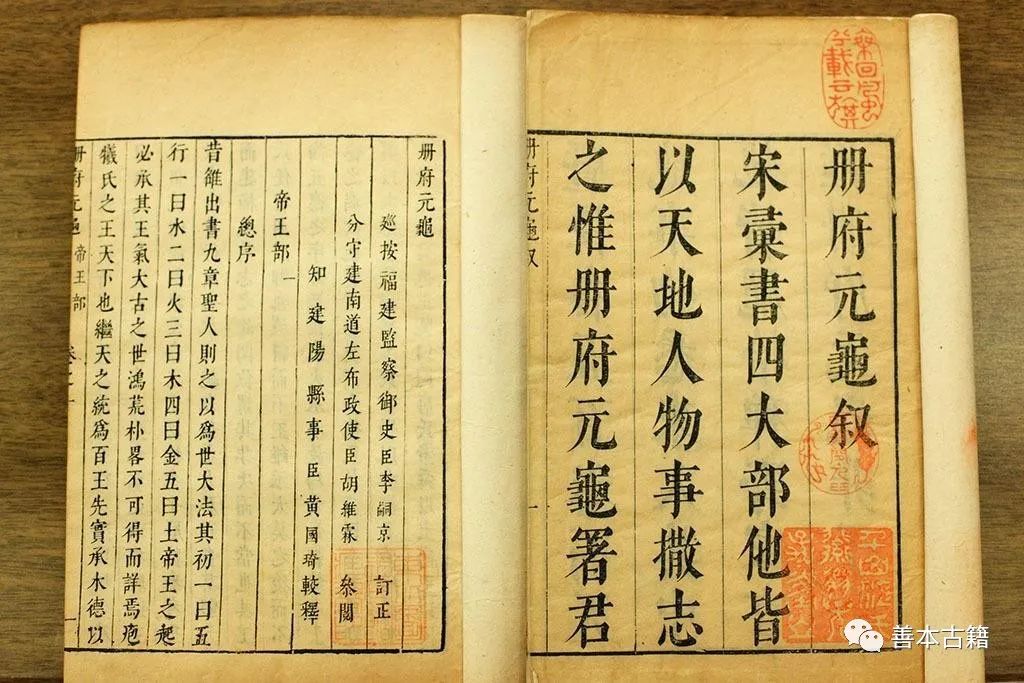 册府元龜叙
宋彚書四大部他皆
以天地人物事撒志
之惟册府元龜署君
册府元龜叙
册府元龜
廵按福建監察御史臣李嗣京 訂正
分守建南道左布政使臣胡維霖 叅閲
知建陽縣事臣黄國琦較釋
帝王部一
總序
昔雒出書九章聖人則之以爲世大法其初一曰五
行一曰水二曰火三曰木四曰金五曰土帝王之起
必承其王氣大古之世鴻荒朴畧不可得而詳焉庖
犧氏之王天下也繼天之統爲百王先實承木德以
册府元龜 帝王部 卷之一 一
善本古籍